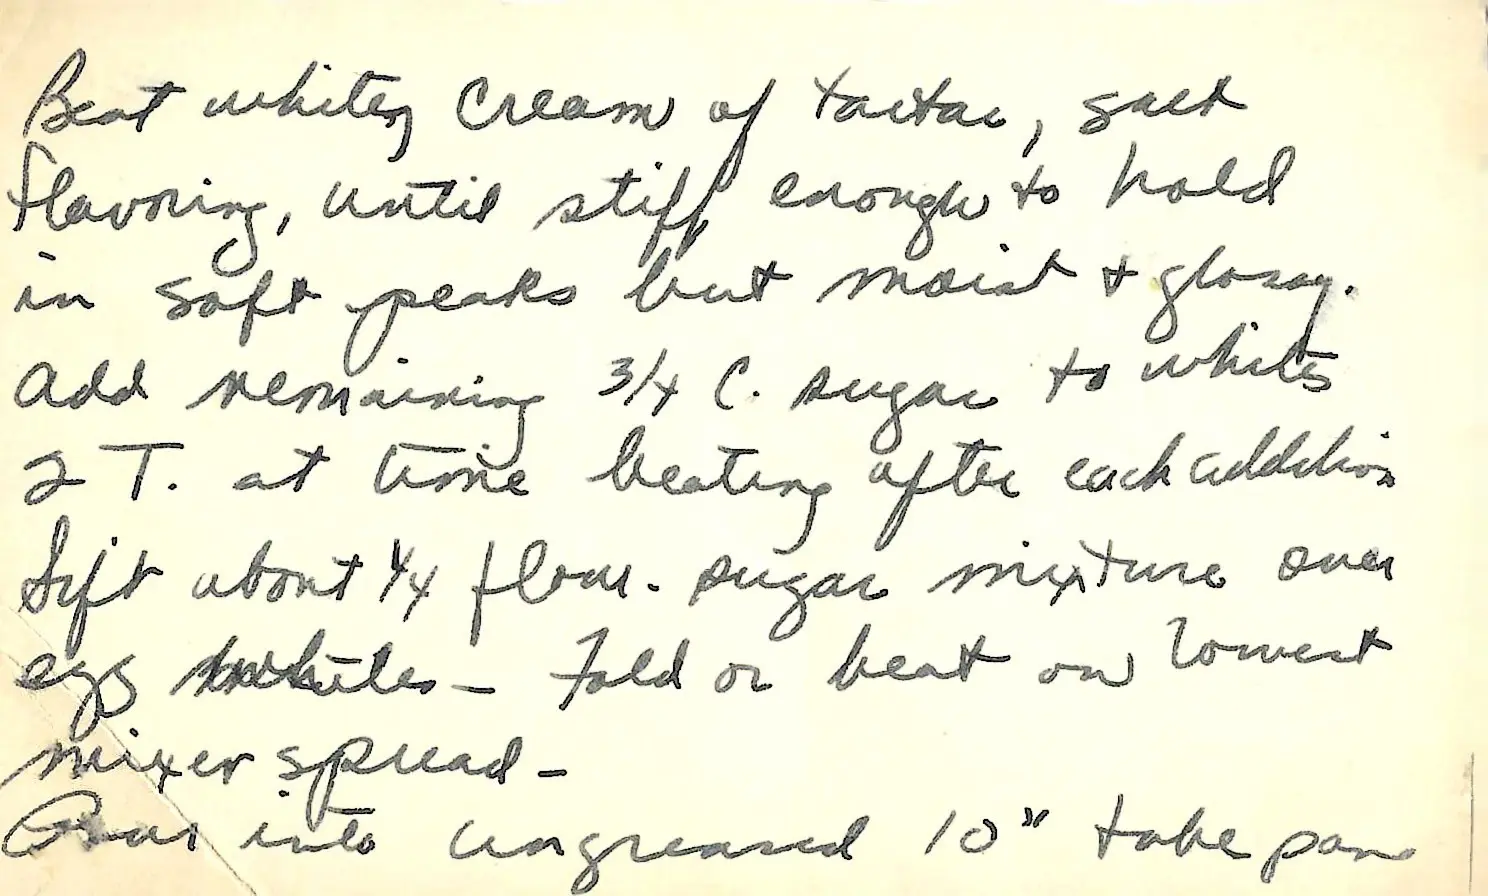 Beat whites, Cream of tartar, salt
flavoring, until stiff enough to hold
in soft peaks but moist + glossy.
Add remaining 3/4 C. sugar to whites
2 T. at time beating after each addition
Sift about 1/4 flour-sugar mixture over
egg whites - Fold or beat on lowest
mixer spread -
Pour into ungreased 10" tube pan